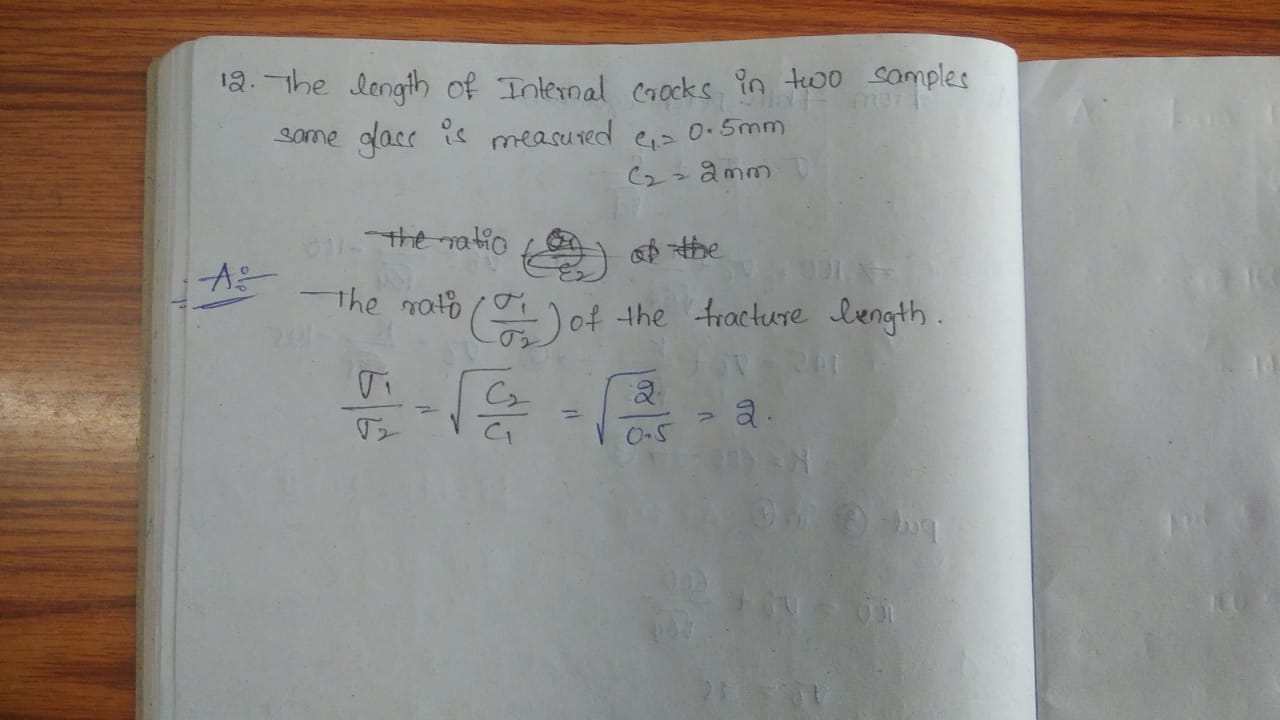 12. The length of Internal cracks in two samples
same glass is measured c₁= 0.5mm
c₂ = 2mm
The ratio
of the
A:
The ratio (σ₁/σ₂) of the fracture length.
σ₁/σ₂ = √(C₂/C₁) = √(2/0.5) = 2.